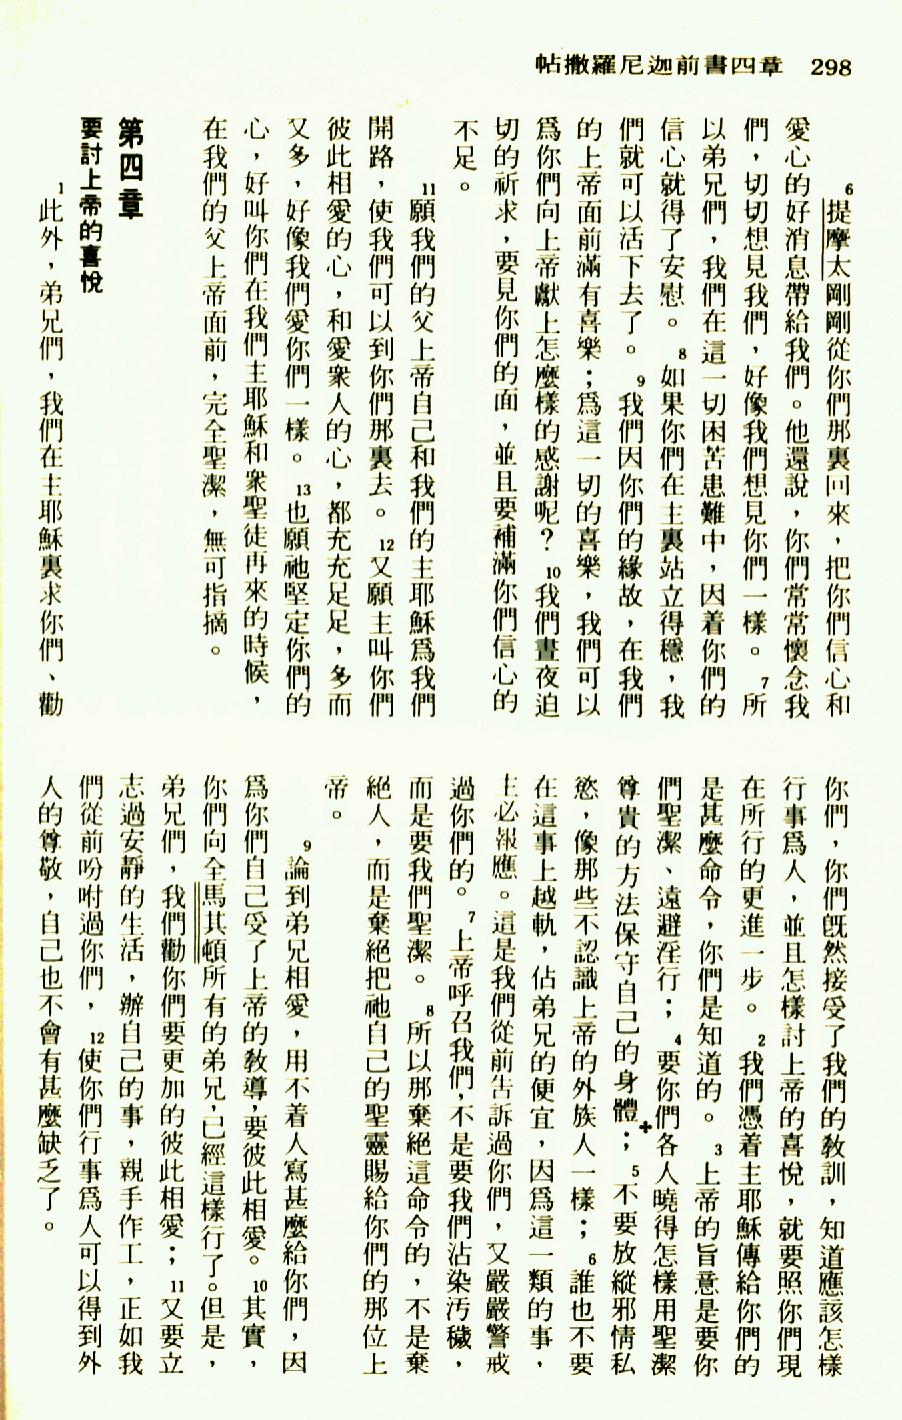 帖撒羅尼迦前書四章 298
6提摩太剛剛從你們那裏回來，把你們信心和
愛心的好消息帶給我們。他還說，你們常常懷念我
們，切切想見我們，好像我們想見你們一樣。7所
以弟兄們，我們在這一切困苦患難中，因着你們的
信心就得了安慰。8如果你們在主裏站立得穩，我
們就可以活下去了。9我們因你們的緣故，在我們
的上帝面前滿有喜樂；爲這一切的喜樂，我們可以
爲你們向上帝獻上怎麼樣的感謝呢？10我們晝夜迫
切的祈求，要見你們的面，並且要補滿你們信心的
不足。
11願我們的父上帝自己和我們的主耶穌爲我們
開路，使我們可以到你們那裏去。12又願主叫你們
彼此相愛的心，和愛衆人的心，都充充足足，多而
又多，好像我們愛你們一樣。13也願祂堅定你們的
心，好叫你們在我們主耶穌和衆聖徒再來的時候，
在我們的父上帝面前，完全聖潔，無可指摘。
第四章
要討上帝的喜悅
1此外，弟兄們，我們在主耶穌裏求你們、勸
你們，你們旣然接受了我們的敎訓，知道應該怎樣
行事爲人，並且怎樣討上帝的喜悅，就要照你們現
在所行的更進一步。2我們憑着主耶穌傳給你們的
是甚麼命令，你們是知道的。3上帝的旨意是要你
們聖潔、遠避淫行；4要你們各人曉得怎樣用聖潔
尊貴的方法保守自己的身體+；5不要放縱邪情私
慾，像那些不認識上帝的外族人一樣；6誰也不要
在這事上越軌，佔弟兄的便宜，因爲這一類的事，
主必報應。這是我們從前告訴過你們，又嚴嚴警戒
過你們的。7上帝呼召我們，不是要我們沾染汚穢，
而是要我們聖潔。8所以那棄絕這命令的，不是棄
絕人，而是棄絕把祂自己的聖靈賜給你們的那位上
帝。
9論到弟兄相愛，用不着人寫甚麼給你們，因
爲你們自己受了上帝的敎導，要彼此相愛。10其實，
你們向全馬其頓所有的弟兄，已經這樣行了。但是，
弟兄們，我們勸你們要更加的彼此相愛；11又要立
志過安靜的生活，辦自己的事，親手作工，正如我
們從前吩咐過你們，12使你們行事爲人可以得到外
人的尊敬，自己也不會有甚麼缺乏了。